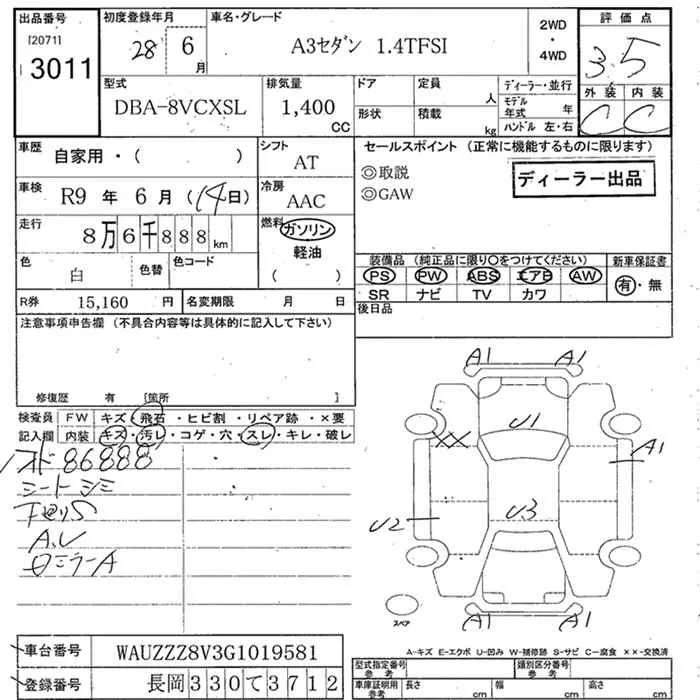 出品番号 初度登録年月 車名・グレード 2WD ・ 4WD 評価点
[2071] 3011 28 6月 A3セダン 1.4TFSI 3.5
外装 内装
C C
型式 排気量 ドア 定員 ディーラー・並行
DBA-8VCXSL 1,400 CC 人 モデル年式 年
形状 積載 kg ハンドル 左・右
車歴 自家用・( ) シフト AT
セールスポイント (正常に機能するものに限ります)
◎取説
◎GAW
ディーラー出品
車検 R9 年 6 月 (14日) 冷房 AAC
走行 8万6千888km 燃料 ガソリン
軽油
( )
色 白 色替 色コード
装備品 (純正品に限り○をつけてください) 新車保証書
PS PW ABS エアB AW 有・無
SR ナビ TV カワ
R券 15,160 円 名変期限 月 日
後日品
注意事項申告欄 (不具合内容等は具体的に記入して下さい)
修復歴 有 [箇所 ]
検査員 FW キズ・飛石・ヒビ割・リペア跡・×要
記入欄 内装 キズ・汚レ・コゲ・穴・スレ・キレ・破レ
オド86888
シートシミ
下廻りS
A,U
ロミラーA
A1 A1
U1
XX
A1
U2
U3
A1 A1
スペア
A-キズ E-エクボ U-凹み W-補修跡 S-サビ C-腐食 ××-交換済
車台番号 WAUZZZ8V3G1019581
登録番号 長岡330て3712
型式指定番号 参考 類別区分番号 参考
車庫証明用 参考 長さ cm 幅 cm 高さ cm